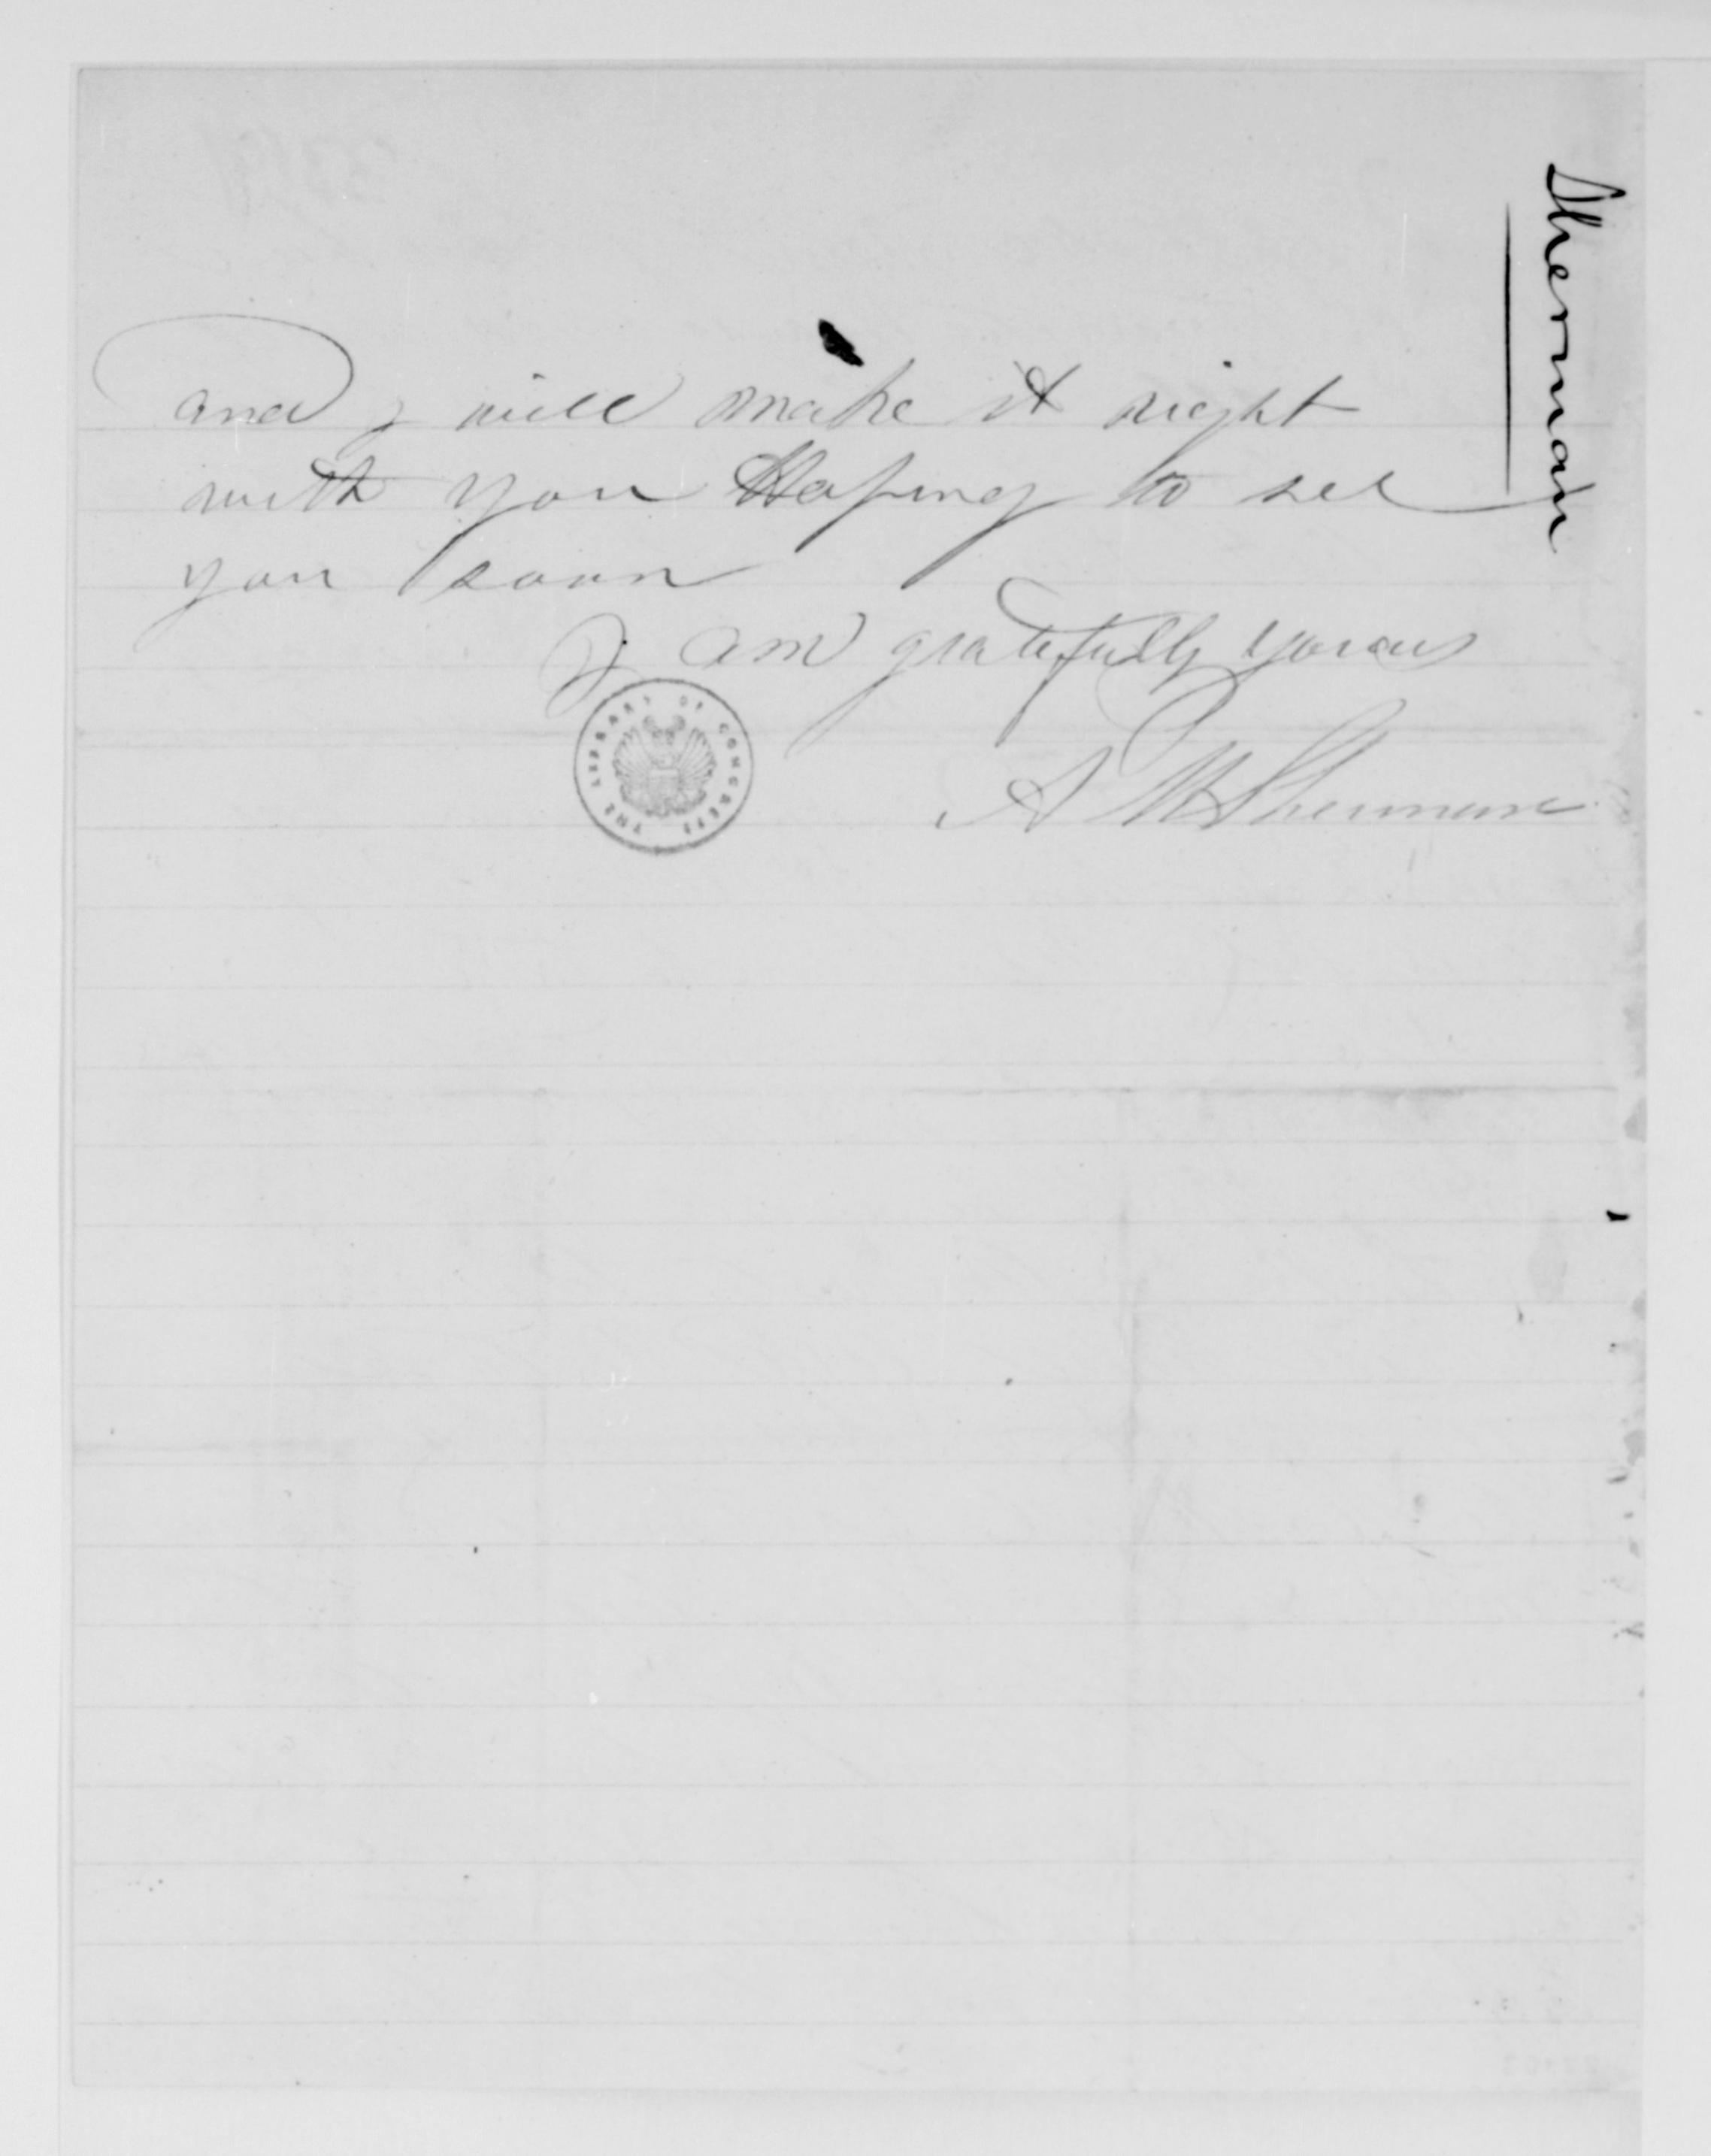 Sherman
and I will make it right
with you Hoping to see
you soon
I am gratefully yours
A W Sherman
THE LIBRARY OF CONGRESS